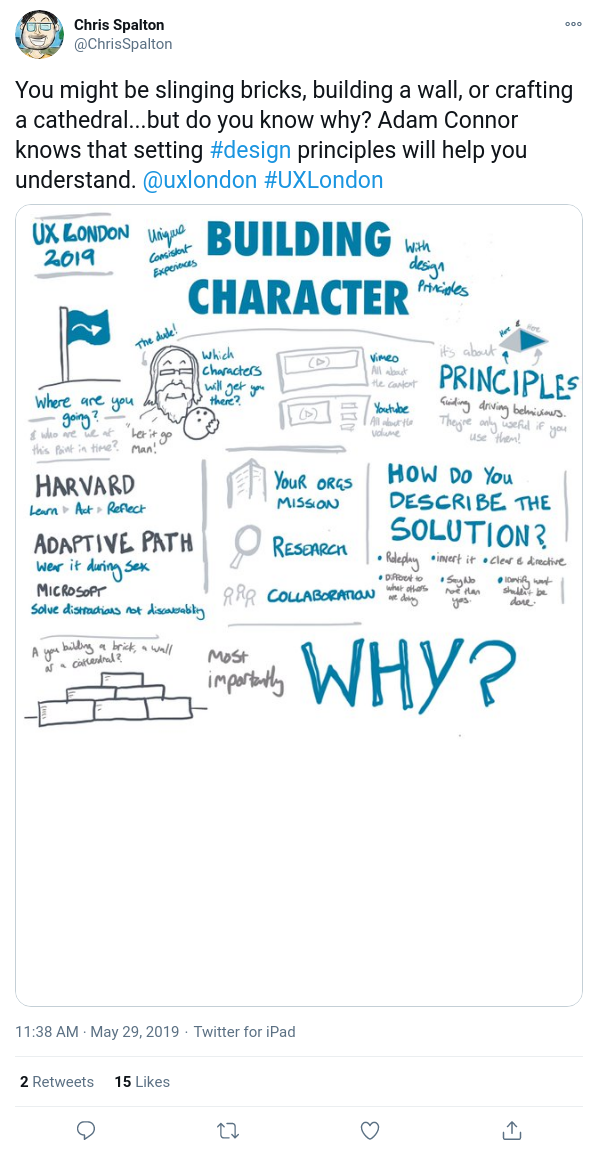 Chris Spalton
@ChrisSpalton
You might be slinging bricks, building a wall, or crafting
a cathedral...but do you know why? Adam Connor
knows that setting #design principles will help you
understand. @uxlondon #UXLondon
UX LONDON
2019
Unique
Consistent
Experiences
BUILDING
CHARACTER
With
design
Principles
Where are you
going?
& who are we at
this point in time?
The dude!
Let it go
Man!
Which
Characters
will get you
there?
Vimeo
All about
the content
Youtube
All about the
volume
Here
it's about
PRINCIPLES
Guiding driving behaviours.
They're only useful if you
use them!
HARVARD
Learn Act Reflect
ADAPTIVE PATH
Wear it during sex
MICROSOFT
Solve distractions not discoverability
YOUR ORGS
MISSION
RESEARCH
COLLABORATION
HOW DO YOU
DESCRIBE THE
SOLUTION?
• Roleplay • invert it • Clear & directive
• Different to
what others
are doing
• Say No
more than
yes.
• identify what
shouldn't be
done.
A you building a brick, a wall
or a cathedral?
Most
importantly
WHY?
11:38 AM · May 29, 2019 · Twitter for iPad
2 Retweets 15 Likes